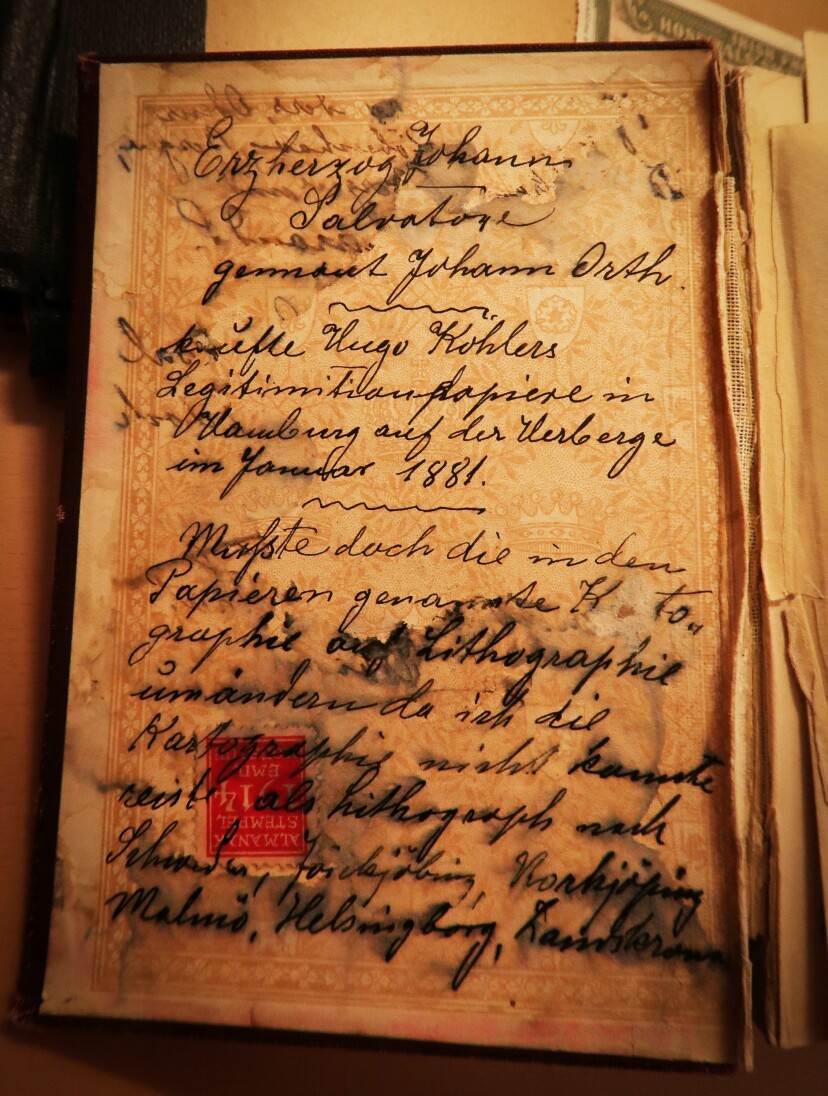 Erzherzog Johann
Salvatore
gennant Johann Orth.
kaüfte Hugo Köhlers
Legitimitionspapiere in
Hamburg auf der Herberge
im Januar 1881.
Mußte doch die in den
Papieren genannte K to„
graphie auf Lithographie
umändern da ich die
Kartographie nicht kannte
reiste als Lithograph nach
Schweden, Jönkjöbing, Norkjöping
Malmö, Helsingborg, Landskrona
ALMANAK
STEMPEL
1914